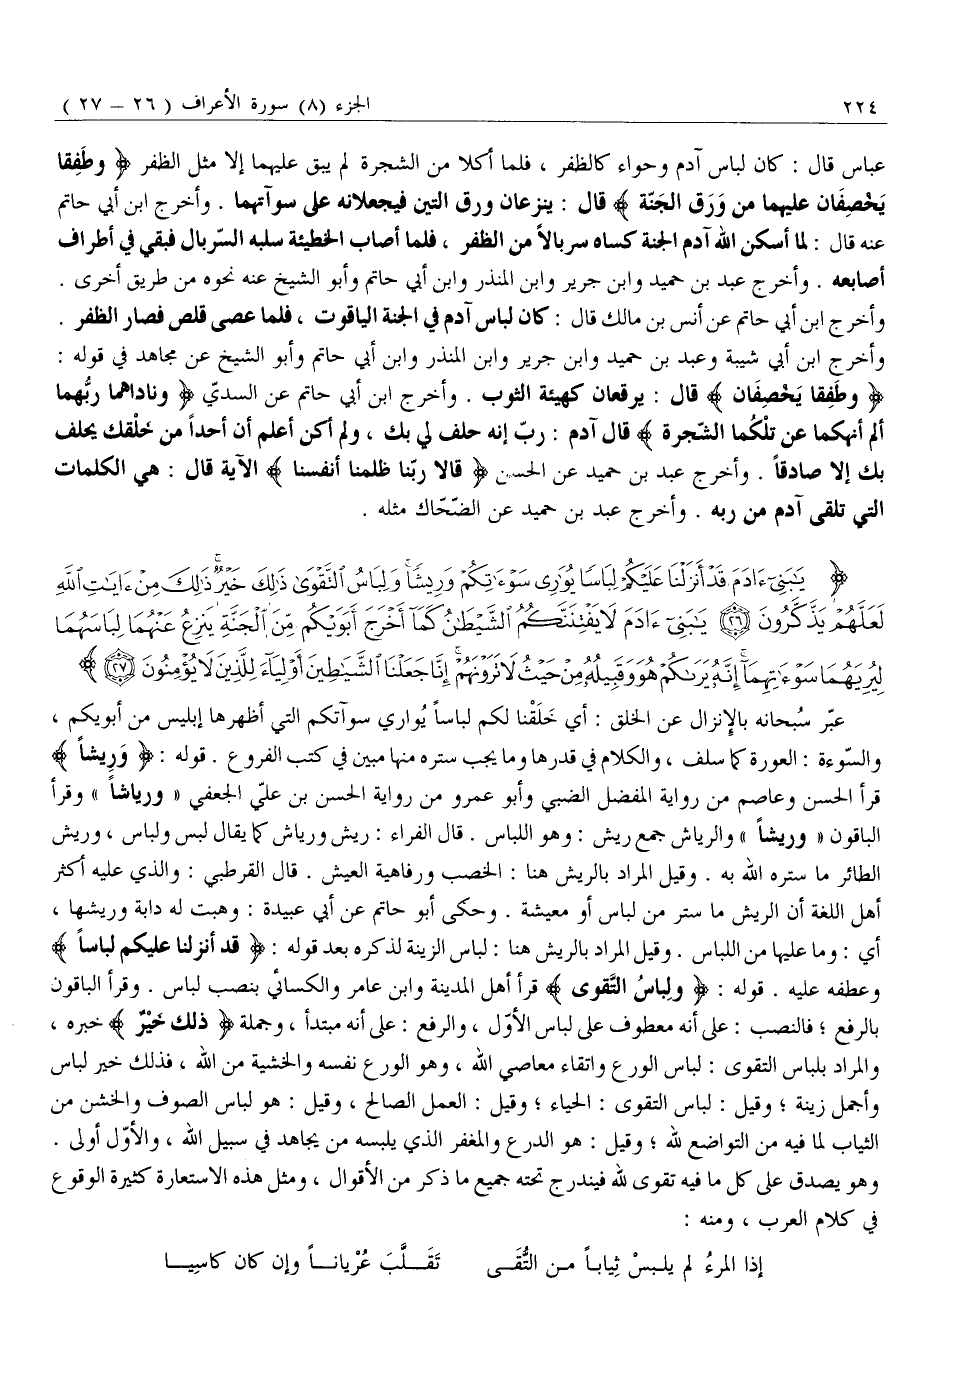 ٢٢٤
الجزء (٨) سورة الأعراف ( ٢٦ – ٢٧ )
عباس قال : كان لباس آدم وحواء كالظفر ، فلما أكلا من الشجرة لم يبق عليهما إلا مثل الظفر ﴿ وطَفِقا
يَخْصِفَان عليهما من وَرَق الجَنّة ﴾ قال : ينزعان ورق التين فيجعلانه على سوآتهما . وأخرج ابن أبي حاتم
عنه قال : لما أسكن الله آدم الجنة كساه سربالاً من الظفر ، فلما أصاب الخطيئة سلبه السّربال فبقي في أطراف
أصابعه . وأخرج عبد بن حميد وابن جرير وابن المنذر وابن أبي حاتم وأبو الشيخ عنه نحوه من طريق أخرى .
وأخرج ابن أبي حاتم عن أنس بن مالك قال : كان لباس آدم في الجنة الياقوت ، فلما عصى قلص فصار الظفر .
وأخرج ابن أبي شيبة وعبد بن حميد وابن جرير وابن المنذر وابن أبي حاتم وأبو الشيخ عن مجاهد في قوله :
﴿ وطَفِقا يَخْصِفَان ﴾ قال : يرقعان كهيئة الثوب . وأخرج ابن أبي حاتم عن السديّ ﴿ وناداهما ربُّهما
ألم أنهكما عن تلْكُما الشّجرة ﴾ قال آدم : ربّ إنه حلف لي بك ، ولم أكن أعلم أن أحداً من خلْقك يحلف
بك إلا صادقاً . وأخرج عبد بن حميد عن الحسن ﴿ قالا ربّنا ظلمنا أنفسنا ﴾ الآية قال : هي الكلمات
التي تلقى آدم من ربه . وأخرج عبد بن حميد عن الضّحّاك مثله .
﴿ يَٰبَنِىٓ ءَادَمَ قَدْ أَنزَلْنَا عَلَيْكُمْ لِبَاسًا يُوَٰرِى سَوْءَٰتِكُمْ وَرِيشًا ۖ وَلِبَاسُ ٱلتَّقْوَىٰ ذَٰلِكَ خَيْرٌ ۚ ذَٰلِكَ مِنْ ءَايَٰتِ ٱللَّهِ
لَعَلَّهُمْ يَذَّكَّرُونَ ﴿٢٦﴾ يَٰبَنِىٓ ءَادَمَ لَا يَفْتِنَنَّكُمُ ٱلشَّيْطَٰنُ كَمَآ أَخْرَجَ أَبَوَيْكُم مِّنَ ٱلْجَنَّةِ يَنزِعُ عَنْهُمَا لِبَاسَهُمَا
لِيُرِيَهُمَا سَوْءَٰتِهِمَآ ۗ إِنَّهُۥ يَرَىٰكُمْ هُوَ وَقَبِيلُهُۥ مِنْ حَيْثُ لَا تَرَوْنَهُمْ ۗ إِنَّا جَعَلْنَا ٱلشَّيَٰطِينَ أَوْلِيَآءَ لِلَّذِينَ لَا يُؤْمِنُونَ ﴿٢٧﴾ ﴾
عبّر سُبحانه بالإنزال عن الخلق : أي خَلَقْنا لكم لباساً يُواري سوآتكم التي أظهرها إبليس من أبويكم ،
والسّوءة : العورة كما سلف ، والكلام في قدرها وما يجب ستره منها مبين في كتب الفروع . قوله : ﴿ وَرِيشاً ﴾
قرأ الحسن وعاصم من رواية المفضل الضبي وأبو عمرو من رواية الحسن بن عليّ الجعفي « ورياشاً » وقرأ
الباقون « وريشاً » والرياش جمع ريش : وهو اللباس . قال الفراء : ريش ورياش كما يقال لبس ولباس ، وريش
الطائر ما ستره الله به . وقيل المراد بالريش هنا : الخصب ورفاهية العيش . قال القرطبي : والذي عليه أكثر
أهل اللغة أن الريش ما ستر من لباس أو معيشة . وحكى أبو حاتم عن أبي عبيدة : وهبت له دابة وريشها ،
أي : وما عليها من اللباس . وقيل المراد بالريش هنا : لباس الزينة لذكره بعد قوله : ﴿ قد أنزلنا عليكم لباساً ﴾
وعطفه عليه . قوله : ﴿ ولباسُ التَّقوى ﴾ قرأ أهل المدينة وابن عامر والكسائي بنصب لباس . وقرأ الباقون
بالرفع ؛ فالنصب : على أنه معطوف على لباس الأوّل ، والرفع : على أنه مبتدأ ، وجملة ﴿ ذلك خَيْرٌ ﴾ خبره ،
والمراد بلباس التقوى : لباس الورع واتقاء معاصي الله ، وهو الورع نفسه والخشية من الله ، فذلك خير لباس
وأجمل زينة ؛ وقيل : لباس التقوى : الحياء ؛ وقيل : العمل الصالح ، وقيل : هو لباس الصوف والخشن من
الثياب لما فيه من التواضع لله ؛ وقيل : هو الدرع والمغفر الذي يلبسه من يجاهد في سبيل الله ، والأوّل أولى .
وهو يصدق على كل ما فيه تقوى لله فيندرج تحته جميع ما ذكر من الأقوال ، ومثل هذه الاستعارة كثيرة الوقوع
في كلام العرب ، ومنه :
إذا المرءُ لم يلبسْ ثِياباً من التُّقَى تَقَلَّبَ عُرْياناً وإن كان كاسِيا